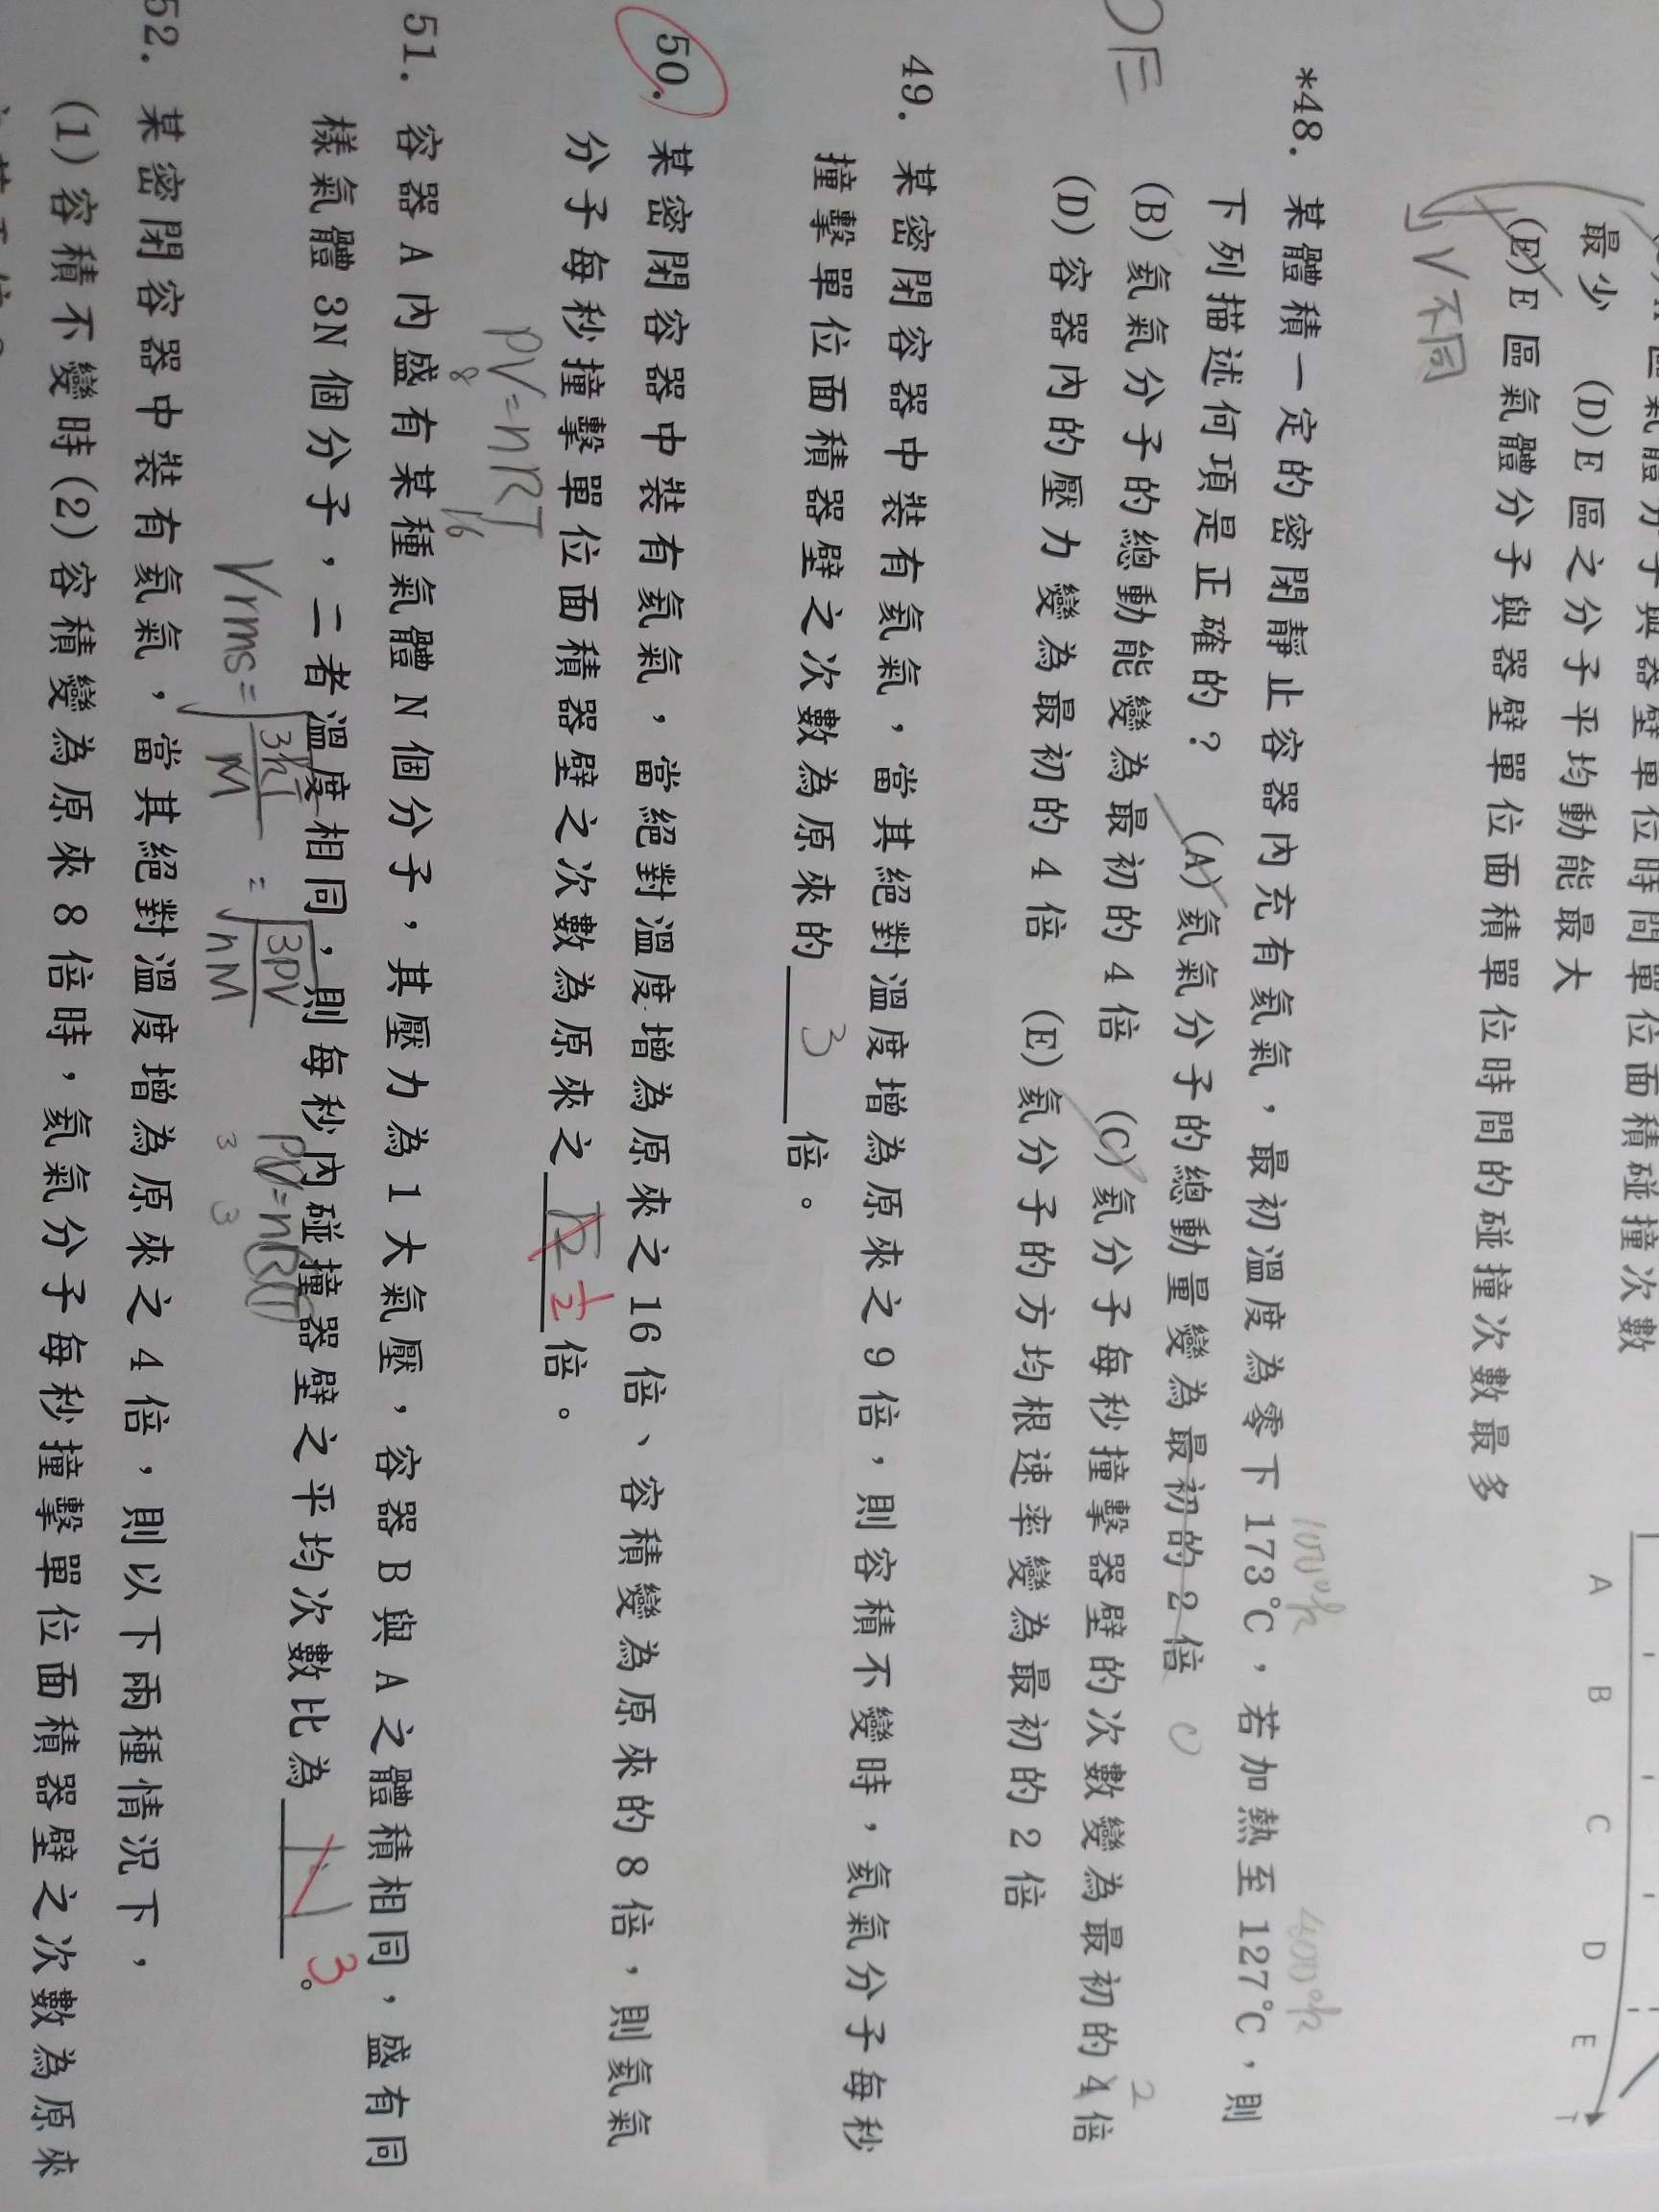 最少 (D)E區之分子平均動能最大
(E)E區氣體分子與器壁單位面積單位時間的碰撞次數最多
V不同
A B C D E T
DE
*48. 某體積一定的密閉靜止容器內充有氦氣，最初溫度為零下173℃，若加熱至127℃，則
100°k 400°k
下列描述何項是正確的？ (A)氦氣分子的總動量變為最初的2倍 0
(B)氦氣分子的總動能變為最初的4倍 (C)氦分子每秒撞擊器壁的次數變為最初的4倍
2
(D)容器內的壓力變為最初的4倍 (E)氦分子的方均根速率變為最初的2倍
49. 某密閉容器中裝有氦氣，當其絕對溫度增為原來之9倍，則容積不變時，氦氣分子每秒
撞擊單位面積器壁之次數為原來的 3 倍。
50. 某密閉容器中裝有氦氣，當絕對溫度增為原來之16倍、容積變為原來的8倍，則氦氣
分子每秒撞擊單位面積器壁之次數為原來之 √2 1/2 倍。
PV=nRT
8 16
51. 容器A內盛有某種氣體N個分子，其壓力為1大氣壓，容器B與A之體積相同，盛有同
樣氣體3N個分子，二者溫度相同，則每秒內碰撞器壁之平均次數比為 3。
Vrms=√3kT/M =√3PV/nM
PV=nRT
3 3
52. 某密閉容器中裝有氦氣，當其絕對溫度增為原來之4倍，則以下兩種情況下，
(1)容積不變時(2)容積變為原來8倍時，氦氣分子每秒撞擊單位面積器壁之次數為原來